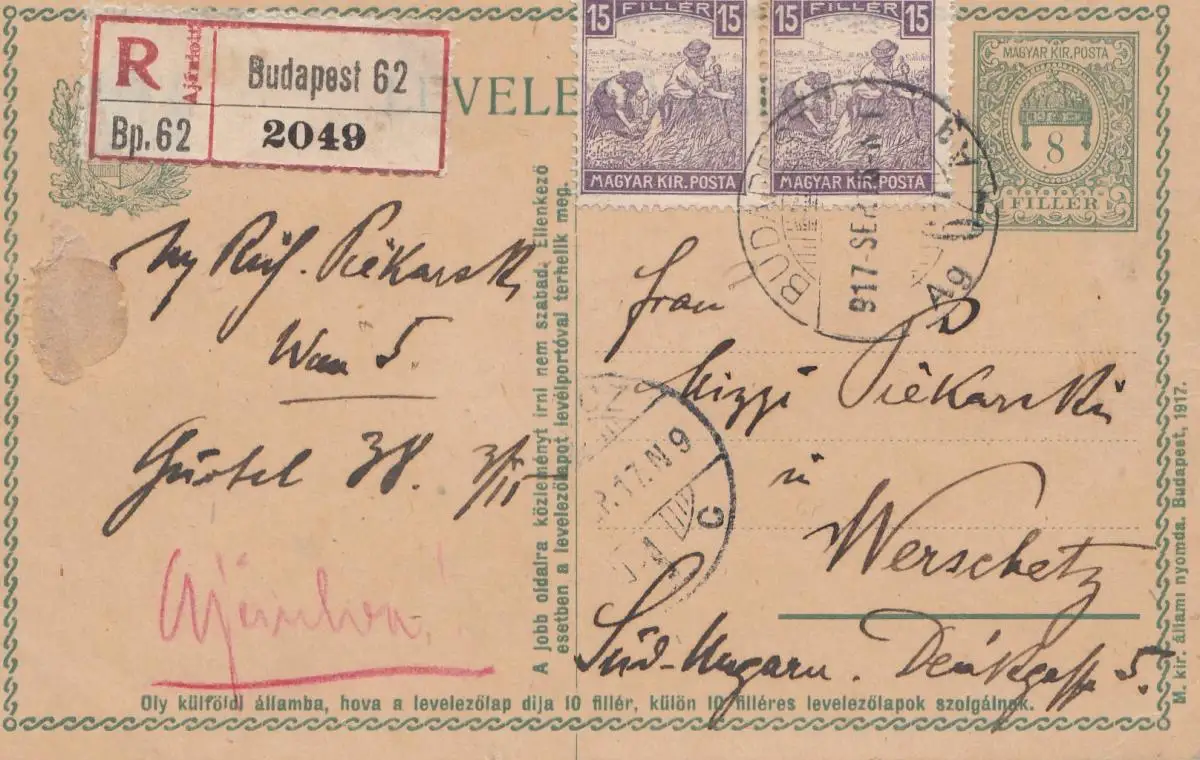 R Ajánlott Budapest 62
Bp. 62 2049
VELE
15 FILLÉR 15
MAGYAR KIR. POSTA
15 FILLÉR 15
MAGYAR KIR. POSTA
MAGYAR KIR. POSTA
8
FILLÉR
BUDAPEST
917 SEP.
49
Piëkarski
Wien 5.
Gürtel 38.
Ajánlva
A jobb oldalra közleményt irni nem szabad. Ellenkező
esetben a levelezőlapot levélportóval terhelik meg.
Frau
Mizzi Piëkarski
in
Werschetz
Süd-Ungarn. Deákgasse 5.
17. N 9
C
Oly külföldi államba, hova a levelezőlap dija 10 fillér, külön 10 filléres levelezőlapok szolgálnak.
M. kir. állami nyomda. Budapest, 1917.